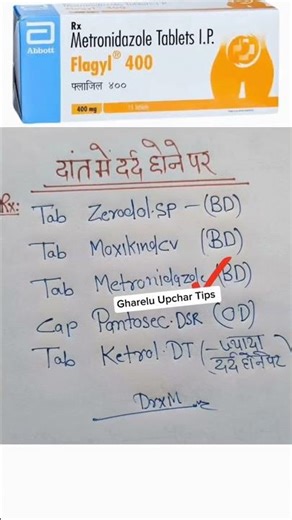 Abbott
Rx
Metronidazole Tablets I.P.
Flagyl® 400
फ्लाजिल ४००
400 mg
दांत में दर्द होने पर
Rx:
Tab Zerodol.SP - (BD)
Tab Moxikind CV (BD)
Tab Metronidazole (BD)
Gharelu Upchar Tips
Cap Pantosec.DSR (OD)
Tab Ketrol.DT (- ज्यादा
दर्द होने पर